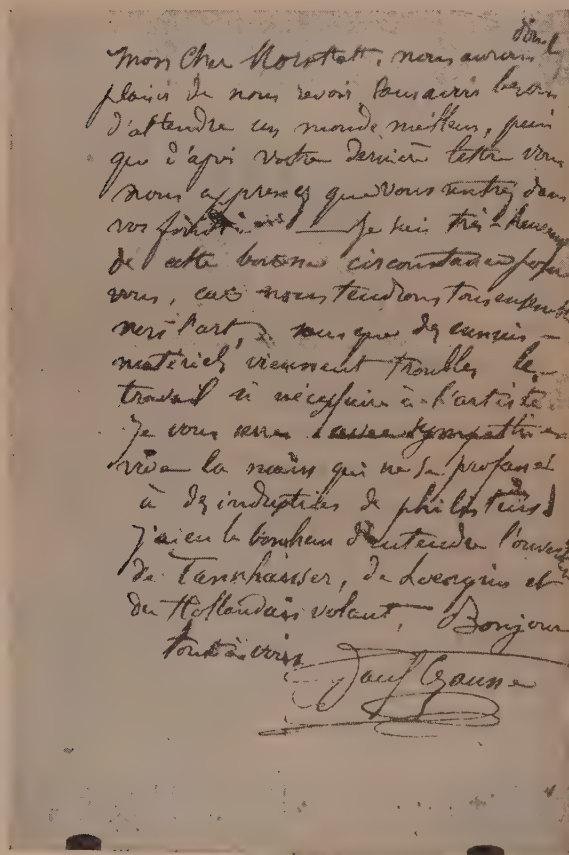 donc
Mon Cher Morstatt, nous aurons
plaisir de nous revoir sans avoir besoin
d'attendre un monde meilleur, puis
que d'après votre dernière lettre vous
nous apprenez que vous rentrez dans
vos — Je suis très-heureux
de cette bonne circonstance pour
vous, car nous tendrons tous ensemble
vers l'art, sans que des ennuis
matériels viennent troubler le
travail si nécessaire à l'artiste.
Je vous serre avec sympathie
la main qui ne se profane
à des industries de philistins
j'ai eu le bonheur d'entendre l'ouverture
de Tannhaüser, de Lohengrin et
du Hollandais volant, Bonjour
tout à vous
Paul Cézanne